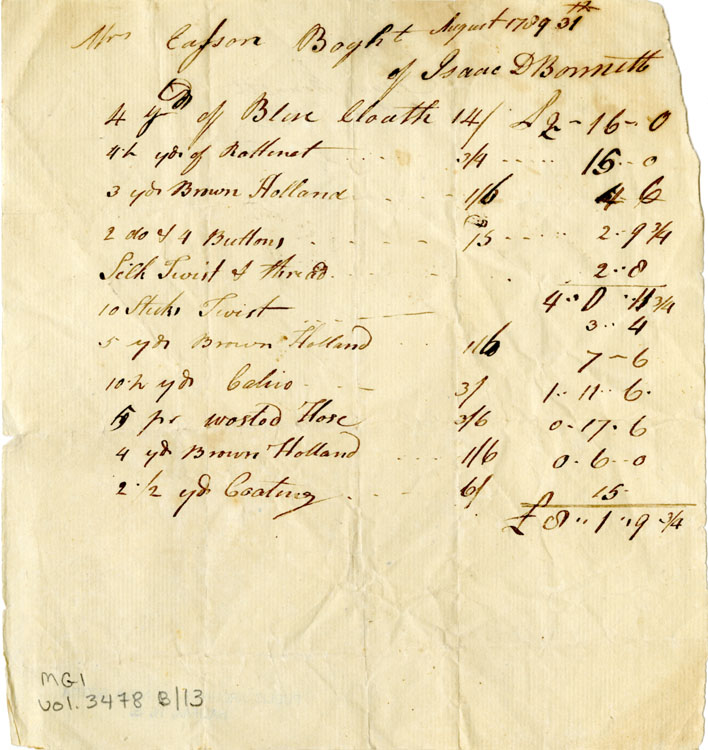 Mrs Easson Boght August 1789 31th
of Isaac DBonnett
4 yds of Blue Cloath 14/ £2-16-0
4 ½ yds of Rattinet 3/4 15--0
3 yds Brown Holland 1/6 4 6
2 do & 4 Buttons 15 2--9 3/4
Silk Twist & thread 2--8
4--0--11 3/4
10 Sticks Twist 3--4
5 yds Brown Holland 1/6 7-6
10 ½ yds Calico 3/ 1--11--6
5 pr wosted Hose 3/6 0-17-6
4 yds Brown Holland 1/6 0-6-0
2 1/2 yds Coating 6/ 15
£8--1--9 3/4
MG1
vol. 3478 B/13